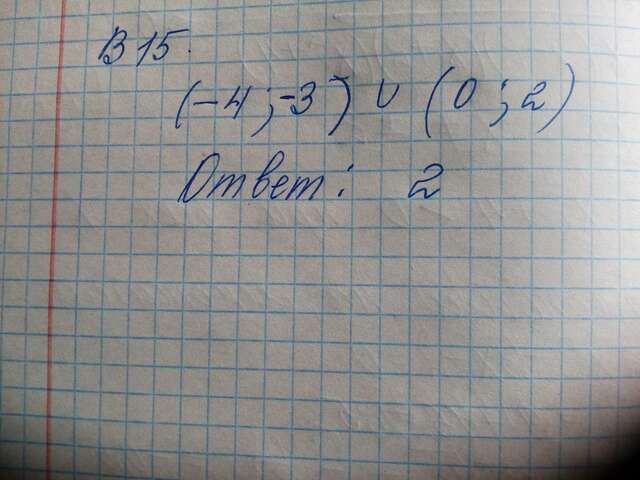 В 15.
(-4; -3) ∪ (0; 2)
Ответ: 2